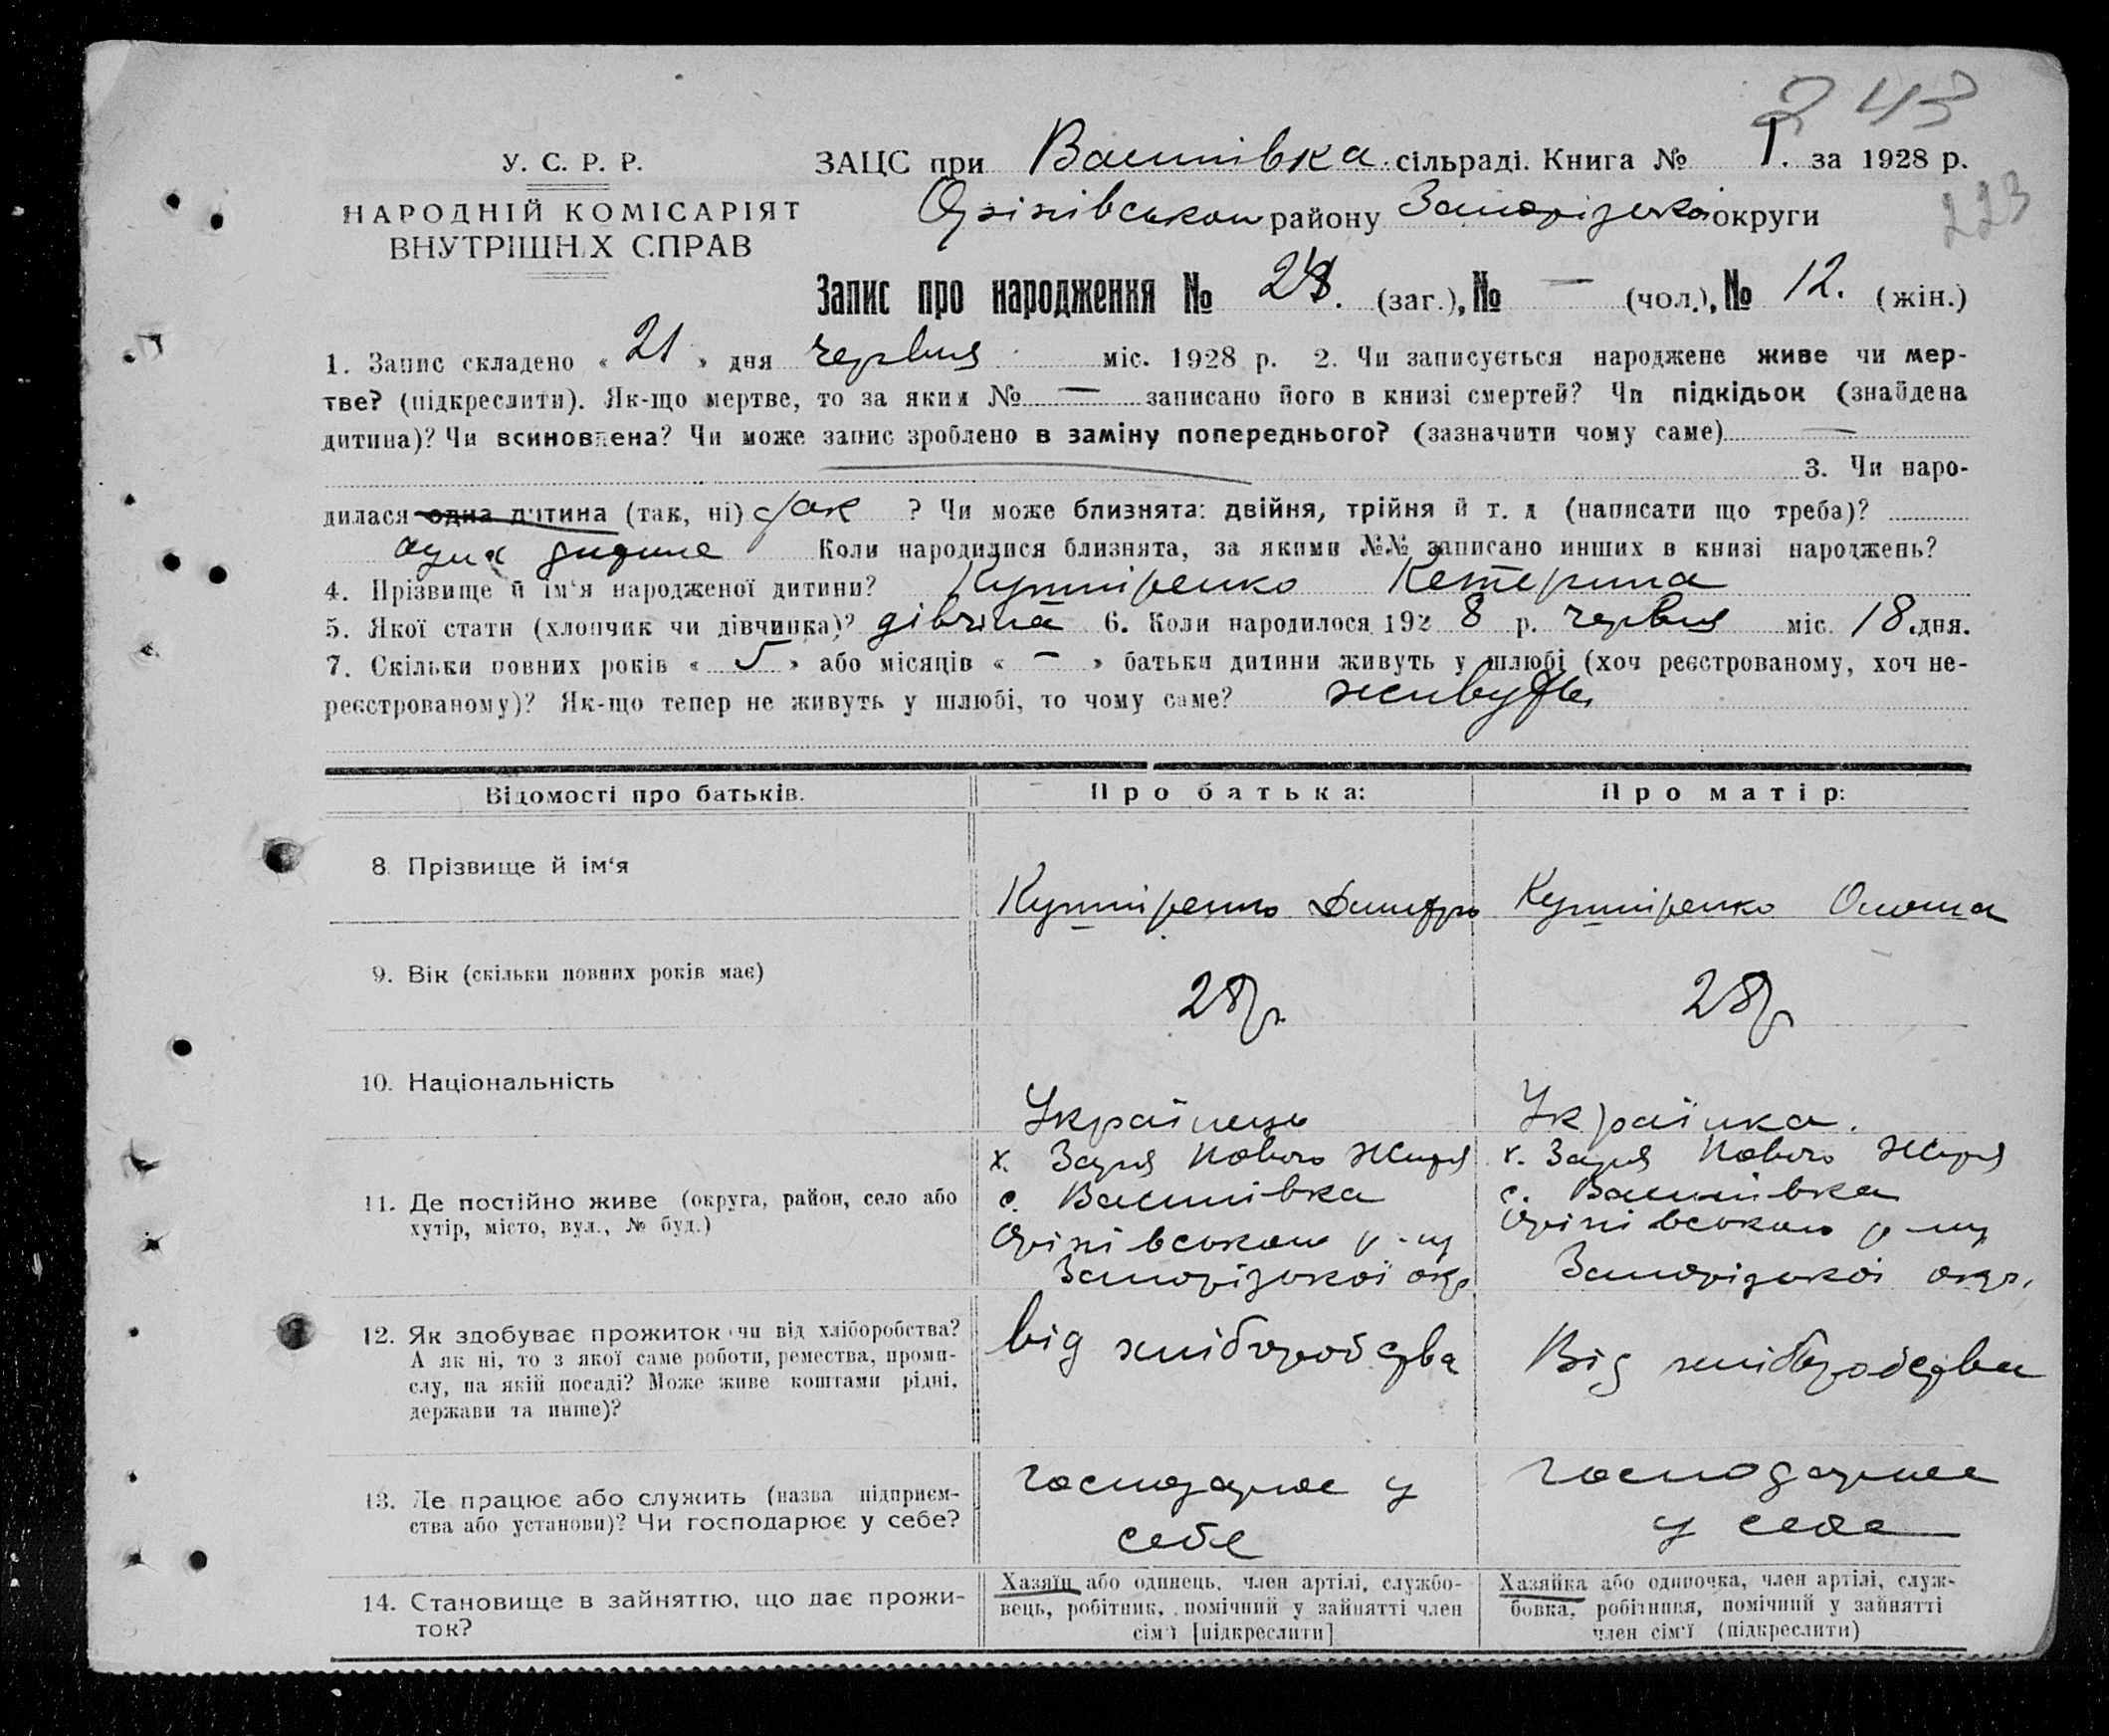 243
У. С. Р. Р.
НАРОДНІЙ КОМІСАРІЯТ
ВНУТРІШНІХ СПРАВ
ЗАЦС при Васинівка сільраді. Книга № 1. за 1928 р.
Оріхівського району Запорізької округи
223
Запис про народження № 28. (заг.), № — (чол.), № 12. (жін.)
1. Запис складено « 21 » дня червня міс. 1928 р. 2. Чи записується народжене живе чи мер-
тве? (підкреслити). Як-що мертве, то за яким № — записано його в книзі смертей? Чи підкідьок (знайдена
дитина)? Чи всиновлена? Чи може запис зроблено в заміну попереднього? (зазначити чому саме) —
3. Чи наро-
дилася одна дитина (так, ні) так ? Чи може близнята: двійня, трійня й т. д (написати що треба)?
одна дитина Коли народилися близнята, за якими №№ записано инших в книзі народжень?
4. Прізвище й ім'я народженої дитини? Кушніренко Катерина
5. Якої стати (хлопчик чи дівчинка)? дівчина 6. Коли народилося 192 8 р. червня міс. 18. дня.
7. Скільки повних років « 5 » або місяців « — » батьки дитини живуть у шлюбі (хоч реєстрованому, хоч не-
реєстрованому)? Як-що тепер не живуть у шлюбі, то чому саме? живуть
Відомості про батьків. Про батька: Про матір:
8. Прізвище й ім'я Кушніренко Дмитро Кушніренко
9. Вік (скільки повних років має) 28 р. 28 р.
10. Національність Українець Українка.
11. Де постійно живе (округа, район, село або
хутір, місто, вул., № буд.)
х. Заря Нового Життя
с. Васинівка
Оріхівського р-ну
Запорізької окр.
х. Заря Нового Життя
с. Васинівка
Оріхівського р-ну
Запорізької окр.
12. Як здобуває прожиток чи від хліборобства?
А як ні, то з якої саме роботи, ремества, проми-
слу, на якій посаді? Може живе коштами рідні,
держави та инше)?
від хліборобства
Від хліборобства
13. Де працює або служить (назва підприєм-
ства або установи)? Чи господарює у себе?
господарює у
себе
господарює
у себе
14. Становище в зайняттю, що дає прожи-
ток?
Хазяїн або одинець, член артілі, службо-
вець, робітник, помічний у зайнятті член
сім'ї [підкреслити]
Хазяйка або одиночка, член артілі, служ-
бовка, робітниця, помічний у зайнятті
член сім'ї (підкреслити)